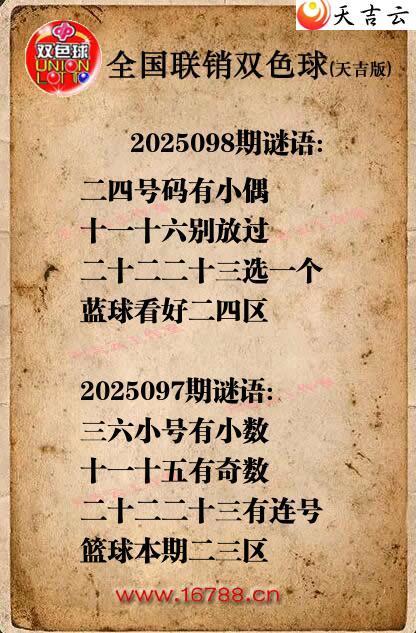 天吉云
双色球
UNION
LOTTO
全国联销双色球(天吉版)
2025098期谜语:
二四号码有小偶
十一十六别放过
二十二二十三选一个
蓝球看好二四区
2025097期谜语:
三六小号有小数
十一十五有奇数
二十二二十三有连号
篮球本期二三区
www.16788.cn